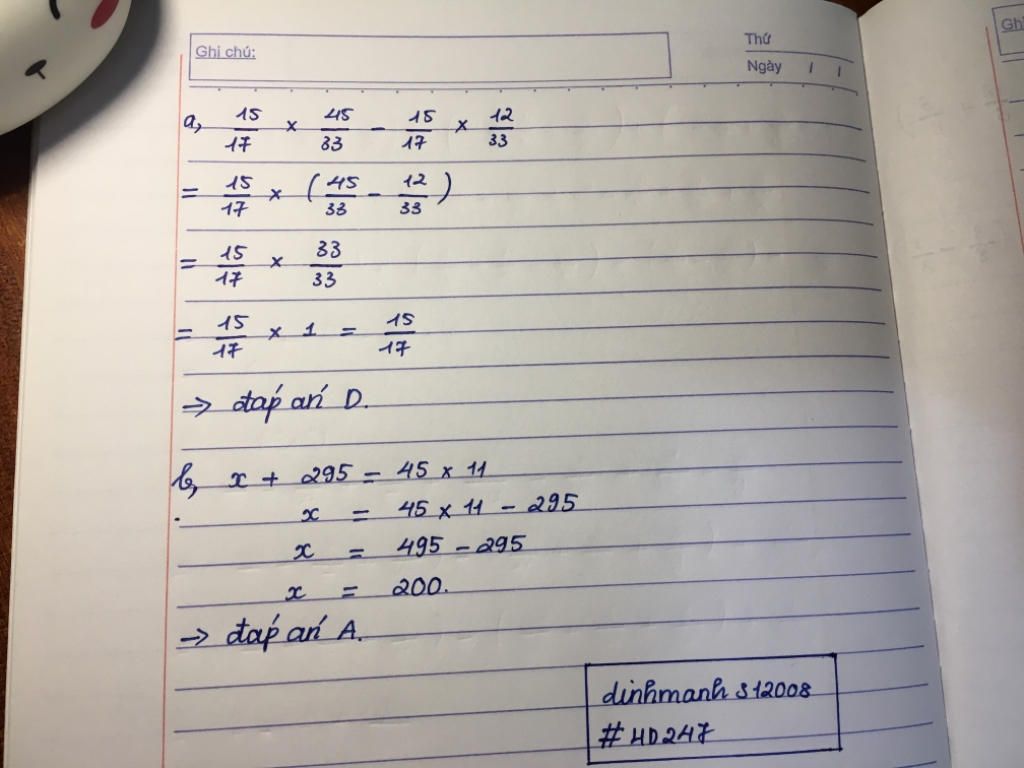 Ghi chú:
Thứ
Ngày / /
a, 15/17 × 45/33 - 15/17 × 12/33
= 15/17 × (45/33 - 12/33)
= 15/17 × 33/33
= 15/17 × 1 = 15/17
→ đáp án D.
b, x + 295 = 45 × 11
x = 45 × 11 - 295
x = 495 - 295
x = 200.
→ đáp án A.
dinhmanh312008
#HD247